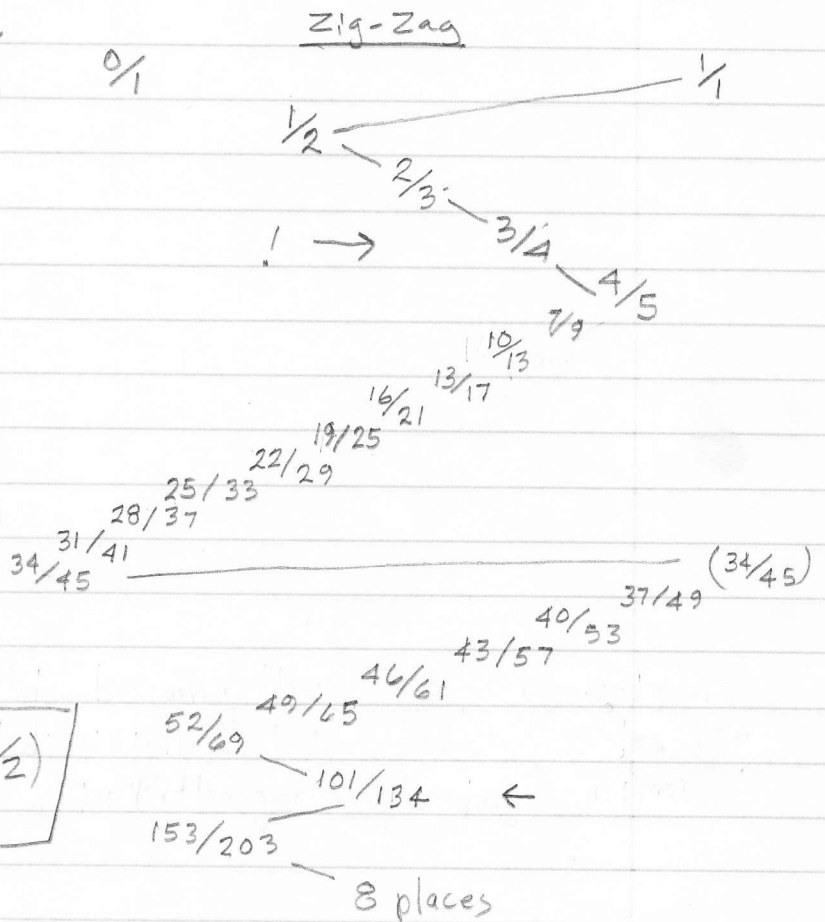 Zig-Zag
0/1 1/1
1/2
2/3
! → 3/4
4/5
7/9
10/13
13/17
16/21
19/25
22/29
25/33
28/37
31/41
34/45 (34/45)
37/49
40/53
43/57
46/61
49/65
52/69
/2)
101/134 ←
153/203
8 places